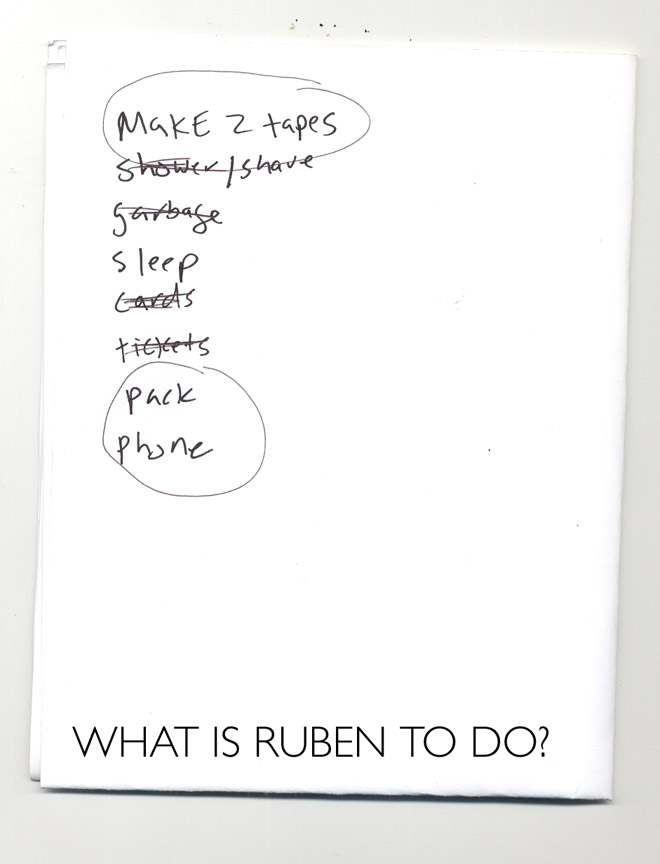 MaKE 2 tapes
shower/shave
garbage
sleep
cards
tickets
pack
phone
WHAT IS RUBEN TO DO?